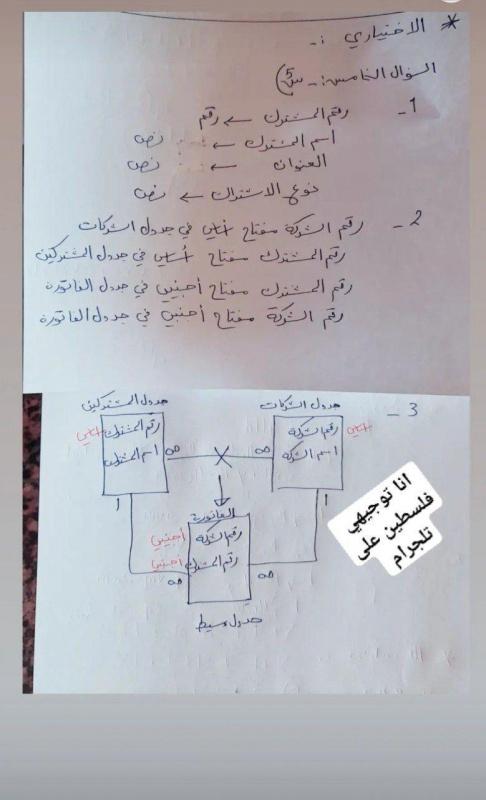 * الاختياري :-
السؤال الخامس :- س5)
1- رقم المشترك ← رقم
اسم المشترك ← نص
العنوان ← نص
نوع الاشتراك ← نص
2- رقم الشركة مفتاح أساسي في جدول الشركات
رقم المشترك مفتاح أساسي في جدول المشتركين
رقم المشترك مفتاح أجنبي في جدول الفاتورة
رقم الشركة مفتاح أجنبي في جدول الفاتورة
3-
جدول الشركات
أساسي رقم الشركة
اسم الشركة
جدول المشتركين
رقم المشترك أساسي
اسم المشترك
∞ ∞
1 1
الفاتورة
رقم الشركة أجنبي
رقم المشترك أجنبي
∞ ∞
جدول وسيط
انا توجيهي
فلسطين على
تلجرام